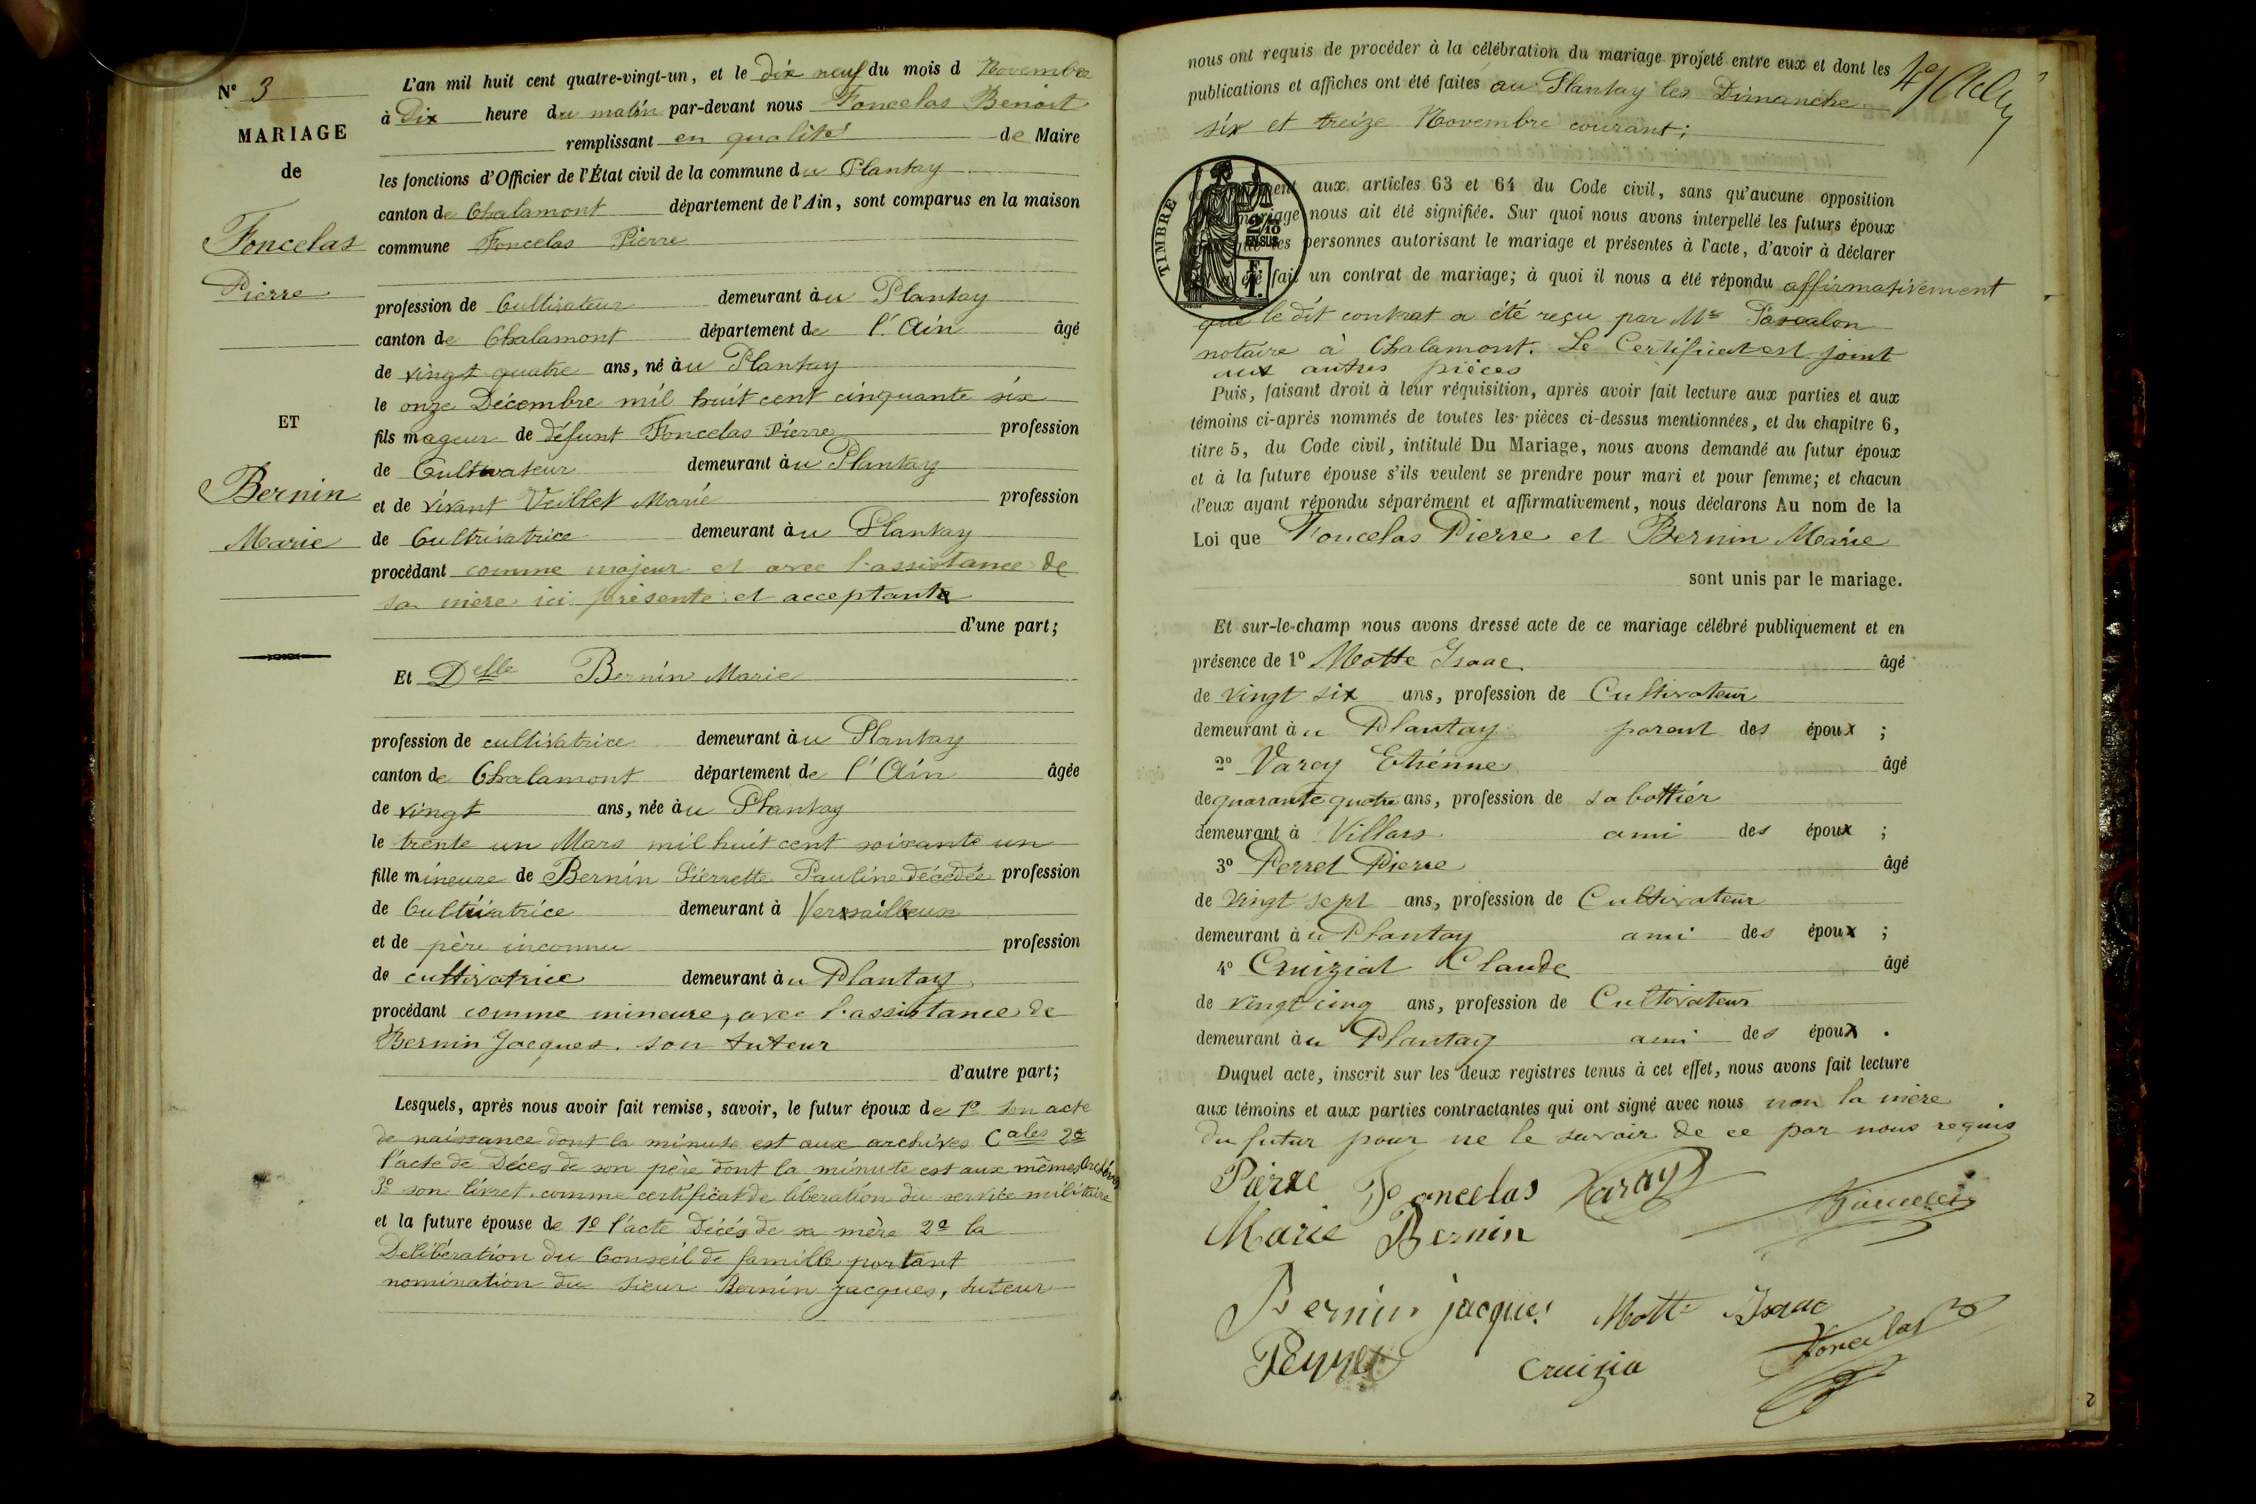 N° 3
MARIAGE
de
Foncelas
Pierre
ET
Bernin
Marie
L'an mil huit cent quatre-vingt-un, et le dix neuf du mois d Novembre
à Dix heure du matin par-devant nous Foncelas Benoit
remplissant en qualité de Maire
les fonctions d'Officier de l'État civil de la commune du Plantay
canton de Chalamont département de l'Ain, sont comparus en la maison
commune Foncelas Pierre
profession de Cultivateur demeurant àu Plantay
canton de Chalamont département de l'Ain âgé
de vingt quatre ans, né àu Plantay
le onze Décembre mil huit cent cinquante six
fils mageur de défunt Foncelas Pierre profession
de Cultivateur demeurant àu Plantay
et de vivant Veillet Marie profession
de Cultrivatrice demeurant àu Plantay
procédant comme majeur et avec l'assistance de
sa mère ici présente et acceptante
d'une part;
Et Delle Bernin Marie
profession de cultivatrice demeurant àu Plantay
canton de Chalamont département de l'Ain âgée
de vingt ans, née àu Plantay
le trente un Mars mil huit cent soixante un
fille mineure de Bernin Pierrette Pauline décédée profession
de Cultivatrice demeurant à Versailleux
et de père inconnu profession
de cultivatrice demeurant àu Plantay
procédant comme mineure, avec l'assistance de
Bernin Jacques. son tuteur
d'autre part;
Lesquels, après nous avoir fait remise, savoir, le futur époux de 1° son acte
de naissance dont la minute est aux archives Cales 2°
l'acte de Déces de son père dont la minute est aux mêmes Archives
3° son livret comme certificat de libération du service militaire
et la future épouse de 1° l'acte Décés de sa mère 2° la
Delibération du Conseil de famille portant
nomination du sieur Bernin Jacques, tuteur
nous ont requis de procéder à la célébration du mariage projeté entre eux et dont les
publications et affiches ont été faites au Plantay les Dimanche
six et treize Novembre courant;
TIMBRE
2/10
EN SUS
aux articles 63 et 64 du Code civil, sans qu'aucune opposition
mariage nous ait été signifiée. Sur quoi nous avons interpellé les futurs époux
les personnes autorisant le mariage et présentes à l'acte, d'avoir à déclarer
été fait un contrat de mariage; à quoi il nous a été répondu affirmativement
que le dit contrat a été reçu par Me Pascalon
notaire à Chalamont. Le Certificat est joint
aux autres pièces
Puis, faisant droit à leur réquisition, après avoir fait lecture aux parties et aux
témoins ci-après nommés de toutes les pièces ci-dessus mentionnées, et du chapitre 6,
titre 5, du Code civil, intitulé Du Mariage, nous avons demandé au futur époux
et à la future épouse s'ils veulent se prendre pour mari et pour femme; et chacun
d'eux ayant répondu séparément et affirmativement, nous déclarons Au nom de la
Loi que Foncelas Pierre et Bernin Marie
sont unis par le mariage.
Et sur-le-champ nous avons dressé acte de ce mariage célébré publiquement et en
présence de 1° Motte Isaac âgé
de vingt six ans, profession de Cultivateur
demeurant àu Plantay parent des époux ;
2° Varey Etiénne âgé
de quarante quatre ans, profession de sabottiér
demeurant à Villars ami des époux ;
3° Perret Pierre âgé
de vingt sept ans, profession de Cultivateur
demeurant àu Plantay ami des époux ;
4° Cruiziat Claude âgé
de vingt cinq ans, profession de Cultivateur
demeurant àu Plantay ami des époux .
Duquel acte, inscrit sur les deux registres tenus à cet effet, nous avons fait lecture
aux témoins et aux parties contractantes qui ont signé avec nous non la mère
du futur pour ne le savoir de ce par nous requis
Pierre Foncelas Varay
Marie Bernin
Bernin jacques Motte Isaac
Peyret Cruizia Foncelas
2